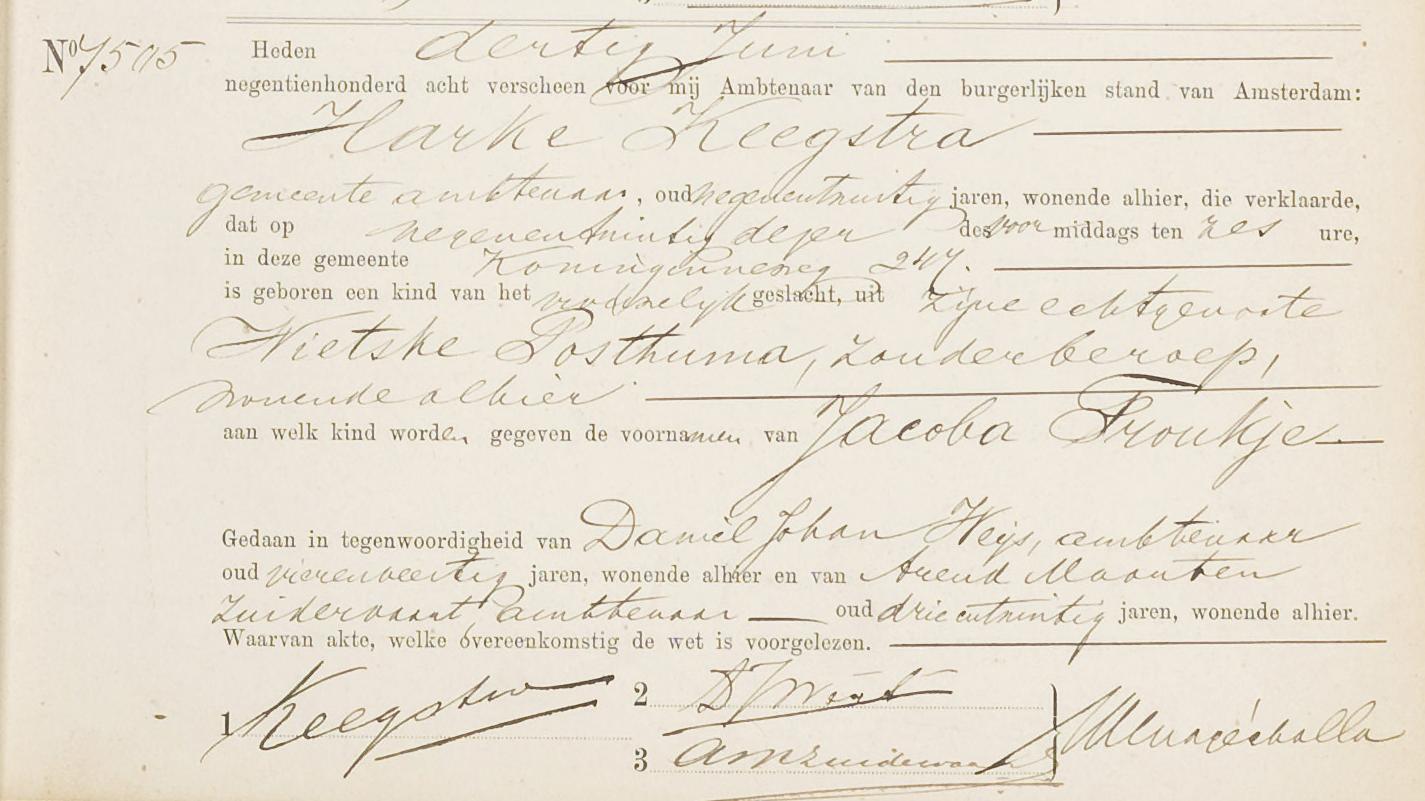 No 7505 Heden dertig Juni
negentienhonderd acht verscheen voor mij Ambtenaar van den burgerlijken stand van Amsterdam:
Harke Keegstra
gemeente ambtenaar, oud negenentwintig jaren, wonende alhier, die verklaarde,
dat op negenentwintig dezer des voormiddags ten zes ure,
in deze gemeente Koninginneweg 247.
is geboren een kind van het vrouwelijk geslacht, uit zijne echtgenoote
Wietske Posthuma, zonder beroep,
wonende alhier
aan welk kind worden gegeven de voornamen van Jacoba Froukje
Gedaan in tegenwoordigheid van Daniel Johan, ambtenaar
oud vierenveertig jaren, wonende alhier en van Arend Maarten
Zuidervaart, ambtenaar oud drieentwintig jaren, wonende alhier.
Waarvan akte, welke overeenkomstig de wet is voorgelezen.
1 Keegstra
2
3 AMZuidervaart